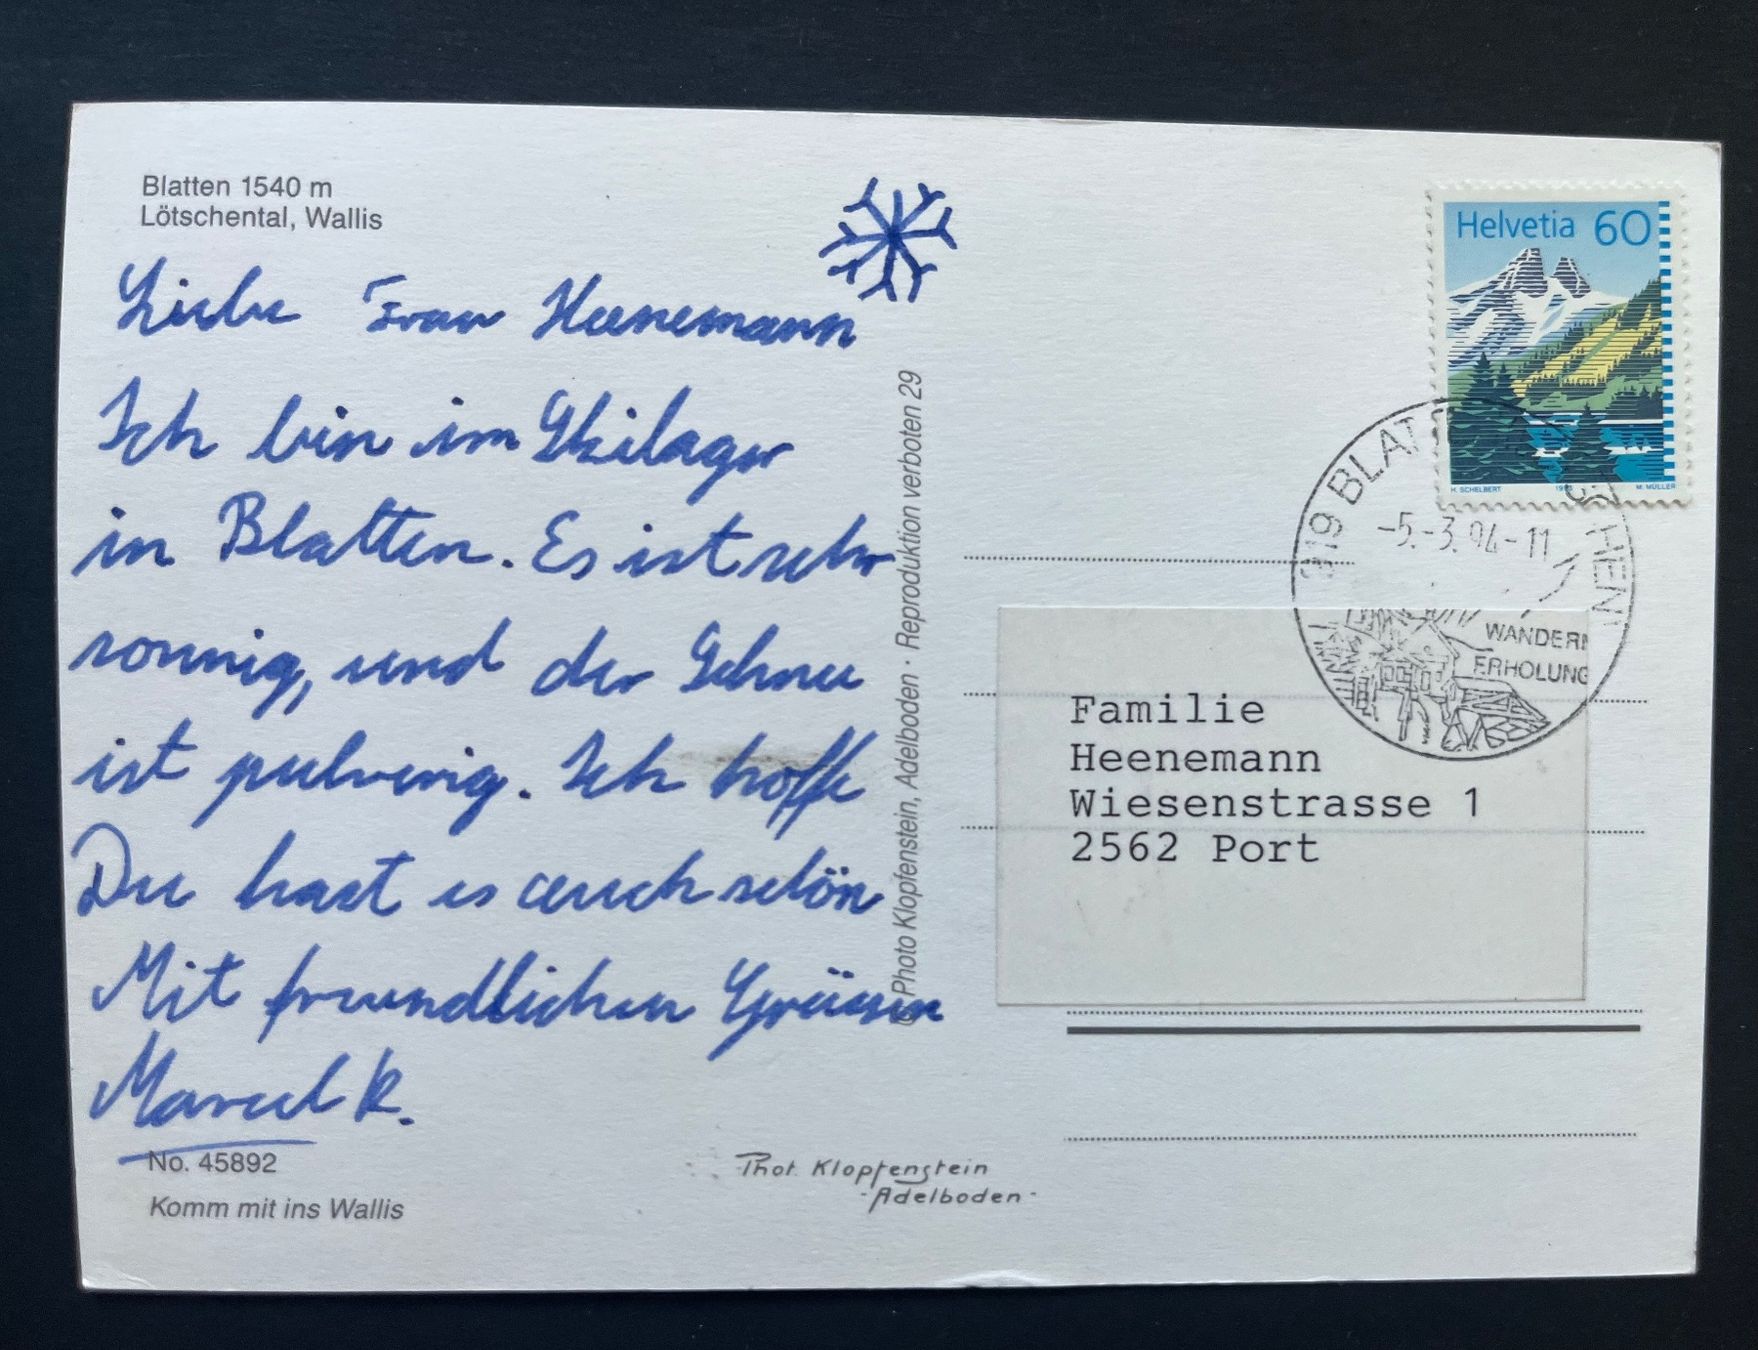 Blatten 1540 m
Lötschental, Wallis
Liebe Frau Heenemann
Ich bin im Skilager
in Blatten. Es ist sehr
sonnig, und der Schnee
ist pulverig. Ich hoffe
Du hast es auch schön
Mit freundlichen Grüssen
Marcel R.
No. 45892
Komm mit ins Wallis
© Photo Klopfenstein, Adelboden · Reproduktion verboten 29
Phot. Klopfenstein
- Adelboden -
Helvetia 60
H. SCHELBERT 1993 M. MÜLLER
BLAT
-5.-3.94-11
WANDERN
ERHOLUNG
Familie
Heenemann
Wiesenstrasse 1
2562 Port